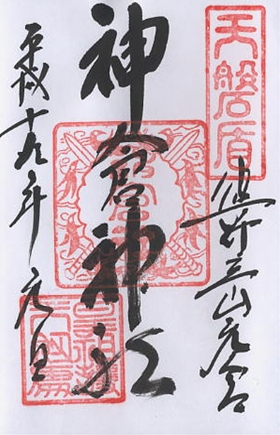 天磐盾
熊野三山元宮
神倉神社
平成十九年元旦